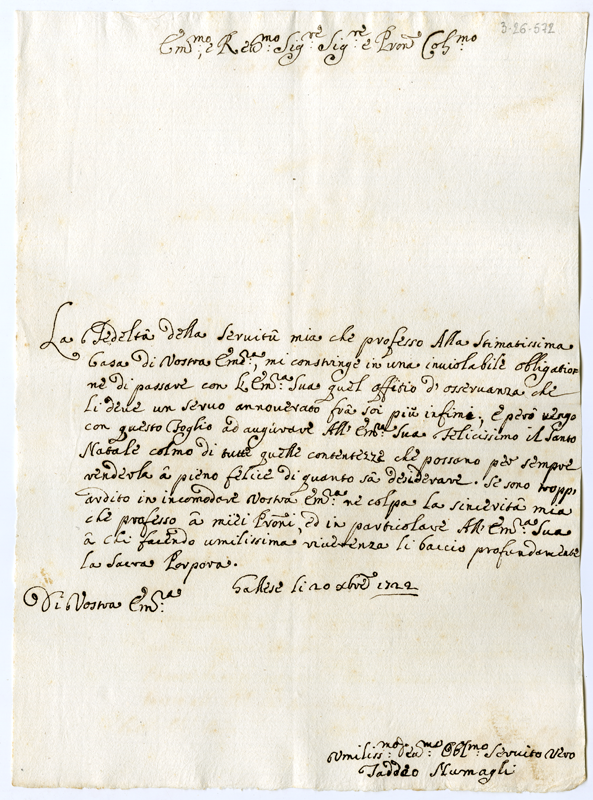 3-26-572
Em:mo, e Reu:mo Sig:re Sig:re e Pron Col:mo
La Fedeltà della servitù mia che professo Alla Stimatissima
Casa di Vostra Em:za, mi constringe in una inviolabile obligatio=
ne di passare con L'Em:za Sua quel offitio d'osservanza che
Li deve un servo annoverato frà soi più infimi, e però vengo
con questo Foglio ad augurare All'Em:za Sua Felicissimo il Santo
Natale colmo di tutte quelle contentezze che possano per sempre
renderla à pieno felice di quanto sà desiderare. Se sono tropp'
ardito in incomodare Vostra Em:za ne colpa La sincerità mia
che professo à miei Proni, ed in particolare All'Em:za Sua
à chi facendo umilissima riverenza li baccio profundamente
la Sacra Porpora.
Gallese li 20 xbre 1722
Di Vostra Em:za
Umiliss:mo Deu:mo Obl:mo Servito Vero
Taddeo Numagli